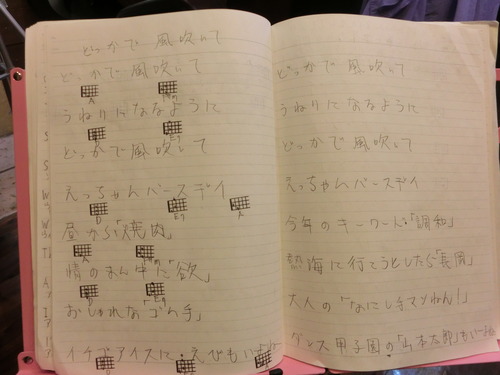 どっかで 風吹いて
どっかで 風吹いて
A
うねりになるように
どっかで 風吹いて
えっちゃんバースデイ
D
A
昼から「焼肉」
A
情のまん中に「欲」
D
おしゃれな「ゴムの手」
イチゴアイスに えびもいるよ
どっかで 風吹いて
うねりになるように
どっかで 風吹いて
えっちゃんバースデイ
今年のキーワード「調和」
熱海に行こうとしたら「長岡」
大人の「なにし手マンねん!」
ダンス甲子園の「山本太郎」も